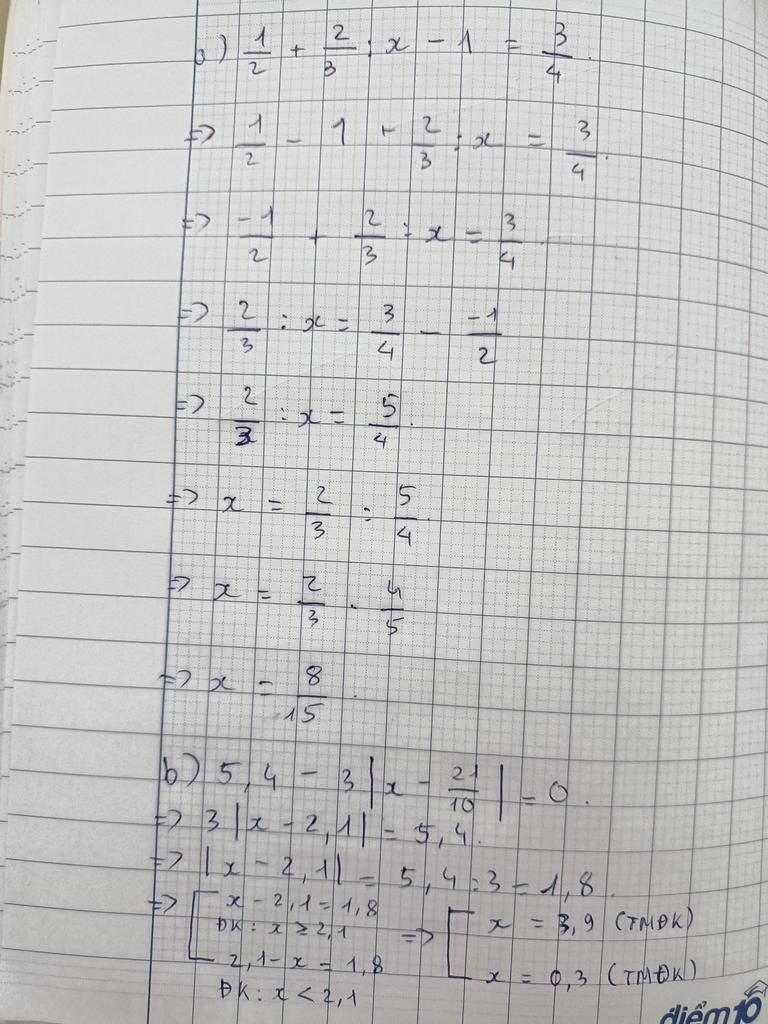 a) 1/2 + 2/3 : x - 1 = 3/4.
=> 1/2 - 1 + 2/3 : x = 3/4.
=> -1/2 + 2/3 : x = 3/4.
=> 2/3 : x = 3/4 - -1/2
=> 2/3 : x = 5/4.
=> x = 2/3 : 5/4.
=> x = 2/3 . 4/5
=> x = 8/15.
b) 5,4 - 3|x - 21/10| = 0.
=> 3|x - 2,1| = 5,4.
=> |x - 2,1| = 5,4 : 3 = 1,8.
=> [ x - 2,1 = 1,8
ĐK: x ≥ 2,1
2,1 - x = 1,8
ĐK: x < 2,1
=> [ x = 3,9 (TMĐK)
x = 0,3 (TMĐK)
điểm 10